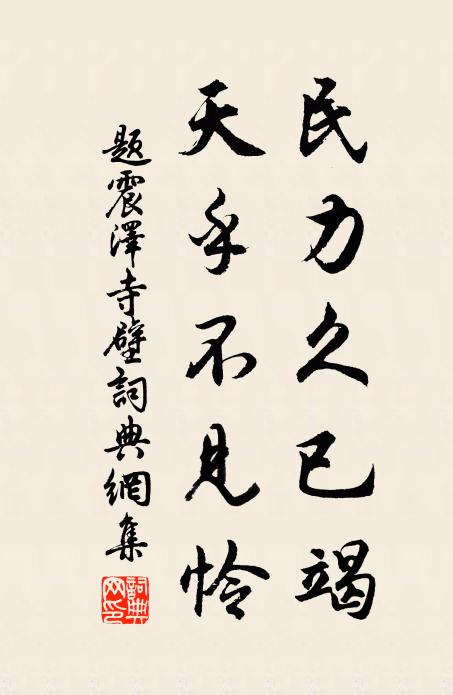 民力久已竭
天乎不見怜
題震澤寺壁詞典網集
詞典网印